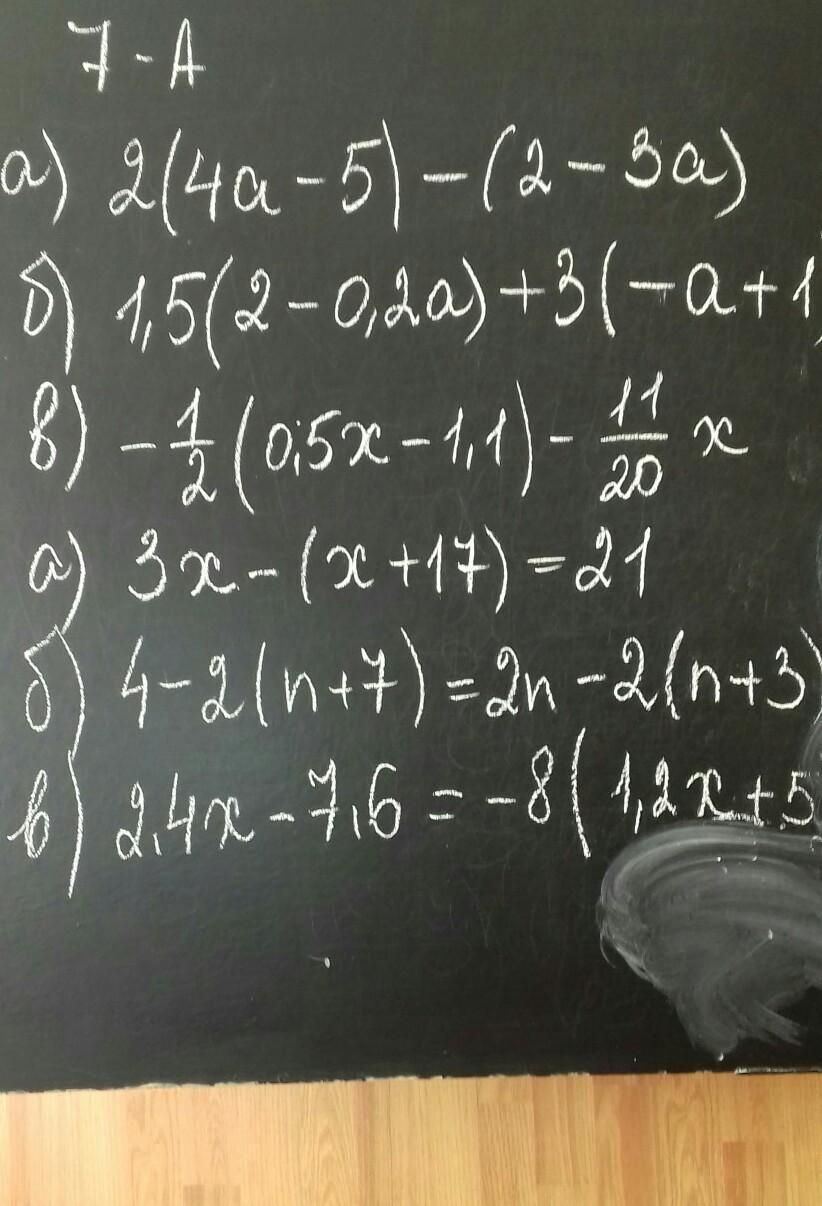 7-А
а) 2(4a-5)-(2-3a)
б) 1,5(2-0,2a)+3(-a+1)
в) -1/2(0,5x-1,1)-11/20x
а) 3x-(x+17)=21
б) 4-2(n+7)=2n-2(n+3)
в) 2,4x-7,6=-8(1,2x+5